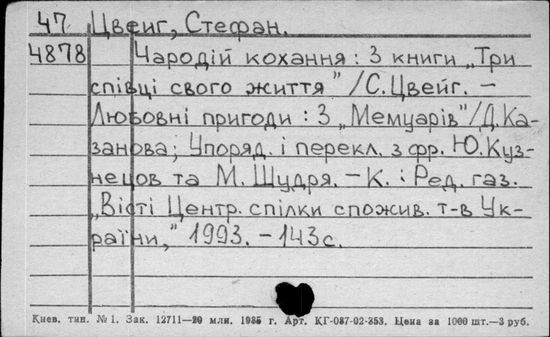 47 Цвейг, Стефан.
4878 Чародій кохання : З книги „Три
співці свого життя" /С.Цвейг. –
Любовні пригоди : З „Мемуарів"/Д.Ка-
занова; Упоряд. і перекл. з фр. Ю.Куз-
нецов та М. Шудря. – К. : Ред. газ.
„Вісті Центр. спілки спожив. т-в Ук-
раїни," 1993. – 143с.
Киев. тип. № 1. Зак. 12711—20 млн. 1985 г. Арт. КГ-087-02-353. Цена за 1000 шт.—3 руб.